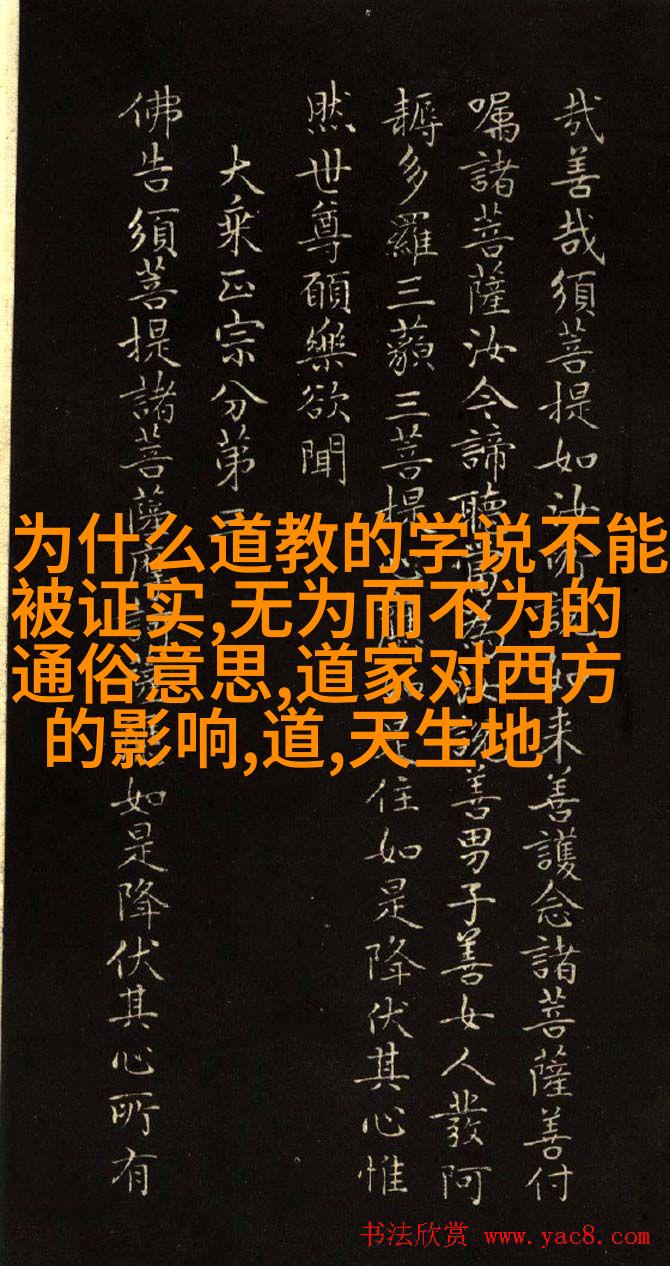 哉善哉須菩提如汝所說如来善護念諸菩薩善付
囑諸菩薩汝今諦聽當為汝說善男子善女人發阿
耨多羅三藐三菩提心應如是住如是降伏其心惟
然世尊願樂欲聞
大乘正宗分第三
佛告須菩提諸菩薩摩訶薩應如是降伏其心所有
为什么道教的学说不能
被证实,无为而不为的
通俗意思,道家对西方
的影响,道,天生地
书法欣赏 www.yac8.com